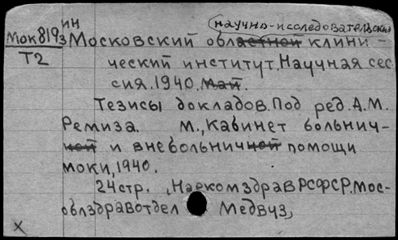 научно-исследовательский
ин
Мок819з Московский областной клини-
Т2 ческий институт. Научная сес-
сия. 1940. май.
Тезисы докладов. Под ред. А.М.
Ремиза. М., Кабинет больнич-
ной и внебольничной помощи
моки, 1940.
24 стр., Наркомздрав РСФСР. Мос-
облздравотдел Медвуз,
х